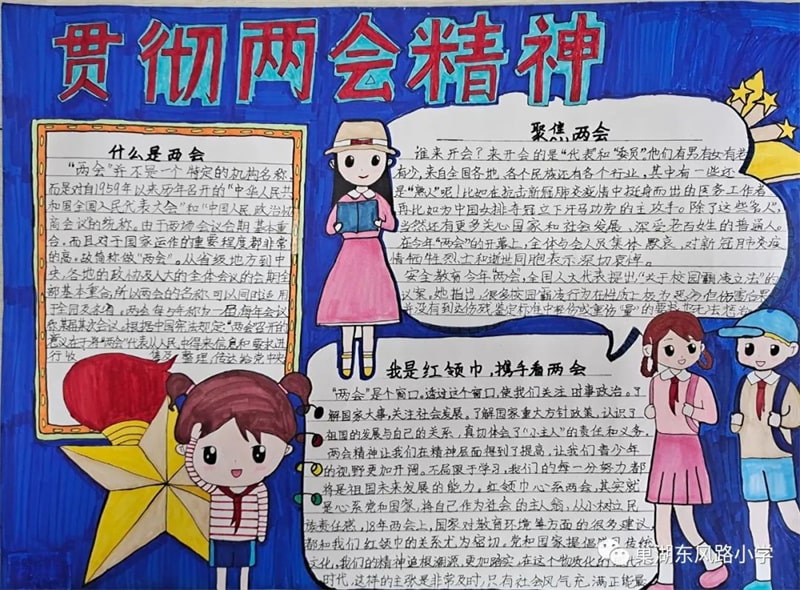 贯彻两会精神
什么是两会
"两会"并不是一个特定的机构名称,
而是对自1959年以来历年召开的"中华人民共
和国全国人民代表大会"和"中国人民政治协
商会议的统称。由于两场会议会期基本重
合,而且对于国家运作的重要程度都非常
的高,故简称做"两会"。从省级地方到中
央,各地的政协及人大的全体会议的会期全
部基本重合,所以两会的名称可以同时适用
于全国及各地。两会每5年称为一届,每年会议
称某届某次会议,根据中国宪法规定:"两会召开的
意义在于将"两会"代表从人民中得来信息和要求进
行收集及整理,传达给党中央
聚焦两会
谁来开会?来开会的是"代表"和"委员"他们有男有女有老
有少,来自全国各地、各个民族还有各个行业,其中有一些还
是"熟人"呢!比如在抗击新冠肺炎疫情中挺身而出的医务工作者
再比如为中国女排夺冠立下汗马功劳的主攻手。除了这些名人,
当然还有更多关心国家和社会发展,深受老百姓的普通人。
在今年"两会"的开幕上,全体与会人员集体默哀,对新冠肺炎疫
情牺牲烈士和逝世同胞表示深切哀悼。
安全教育今年"两会",全国人大代表提出"关于校园霸凌立法"的
议案。她指出,很多校园霸凌行为在性质上极为恶劣,但伤害后果
并没有到达伤残鉴定标准中轻伤或重伤
我是红领巾,携手看两会
"两会"是个窗口。透过这个窗口,使我们关注时事政治。了
解国家大事,关注社会发展。了解国家重大方针政策,认识了
祖国的发展与自己的关系,真切体会了"小主人"的责任和义务。
两会精神让我们在精神层面得到了提高,让我们青少年
的视野更加开阔。不局限于学习,我们的每一分努力都
将是祖国未来发展的能力。红领巾心系两会,其实就
是心系党和国家,将自己作为社会的主人翁,从小树立民
族责任感,18年两会上,国家对教育环境等方面的很多建议
都和我们红领巾的关系尤为密切,党和国家提倡
文化,我们的精神追根溯源,更加踏实,在这个物质化的
时代,这样的主张是非常及时,只有社会风气充满正能量
巢湖东风路小学